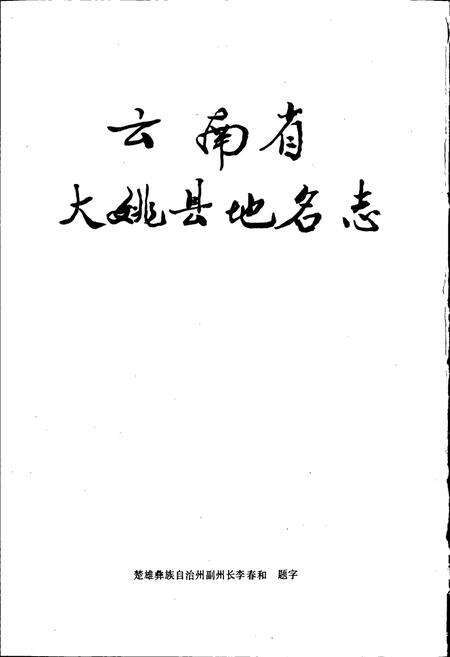 云南省
大姚县地名志
楚雄彝族自治州副州长李春和 题字